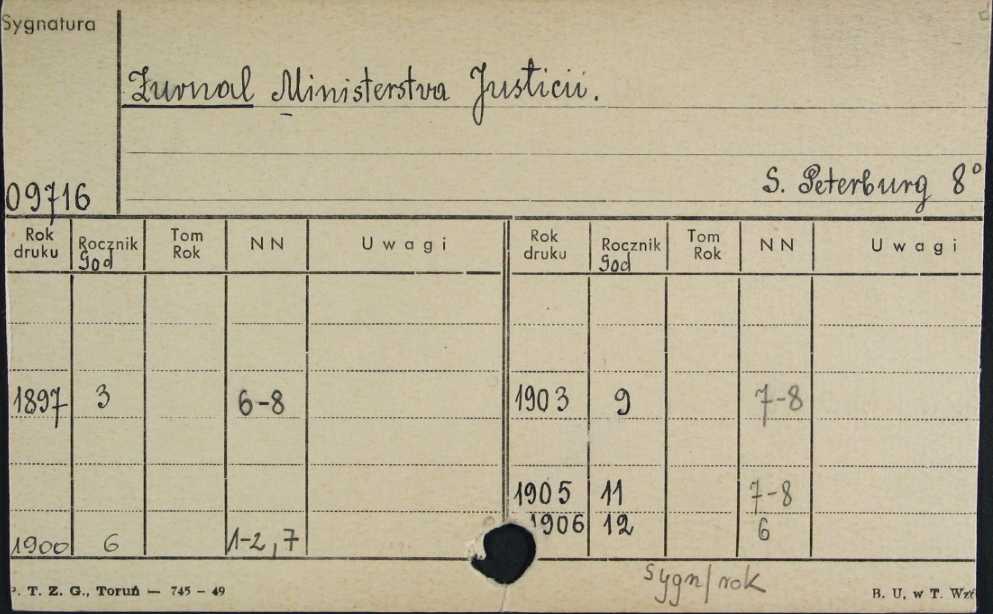 Sygnatura
Žurnal Ministerstva Justicii.
S. Peterburg 8°
09716
Rok druku Rocznik Tom Rok NN Uwagi Rok druku Rocznik Tom Rok NN Uwagi
God God
1897 3 6-8 1903 9 7-8
1905 11 7-8
1906 12 6
1900 6 1-2, 7
sygn/rok
T. Z. G., Toruń — 745 - 49 B. U. w T.